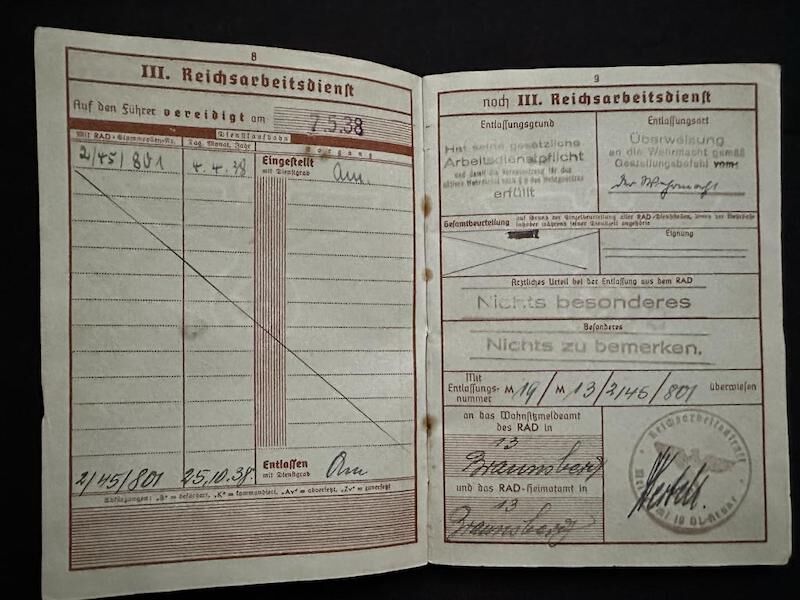 8
III. Reichsarbeitsdienst
Auf den Führer vereidigt am 7.5.38
Dienstlaufbahn
Mit RAD-Stammrollen-Nr.
Tag, Monat, Jahr
Vorgang
2/45/801 4.4.38 Eingestellt Am.
mit Dienstgrad
Entlassen
2/45/801 25.10.38. mit Dienstgrad Am
Abkürzungen: „B“ = befördert, „K“ = kommandiert, „Av“ = abversetzt, „Zv“ = zuversetzt
9
noch III. Reichsarbeitsdienst
Entlassungsgrund
Hat seine gesetzliche
Arbeitsdienstpflicht
und damit die Voraussetzung für den
aktiven Wehrdienst nach § 8 des Wehrgesetzes
erfüllt
Entlassungsart
Überweisung
an die Wehrmacht gemäß
Gestellungsbefehl vom:
der Wehrmacht
Gesamtbeurteilung auf Grund der Einzelbeurteilung aller RAD-Dienststellen, denen der Wehrpaß-
inhaber während seiner Dienstzeit angehörte
Eignung
Ärztliches Urteil bei der Entlassung aus dem RAD
Nichts besonderes
Besonderes
Nichts zu bemerken.
Mit
Entlassungs-
nummer M 19 / M 13/2/45/801 überwiesen
an das Wohnsitzmeldeamt
des RAD in
13
Braunsberg
und das RAD-Heimatamt in
13
Braunsberg
Reichsarbeitsdienst